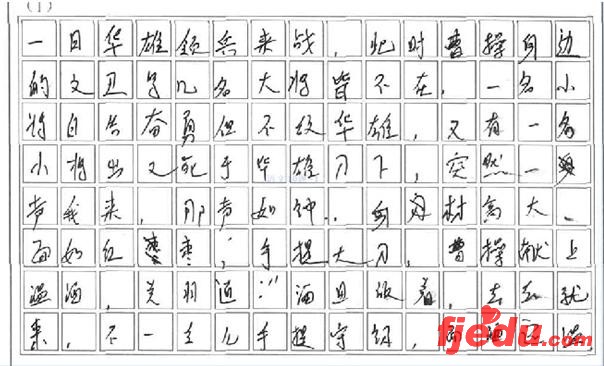 (1)
一日华雄领兵来战，此时曹操身边
的文卫了几名大将皆不在，一名小
将自告奋勇但不纹华雄，又有一名
小将出又死于华雄刀下，突然一
声我来，那声如钟，身材高大、
面如红枣，手提大刀，曹操献上
温酒，关羽道："酒且饭着，去去就
来，不一会儿手提守级，酒还温。
fjedu.com